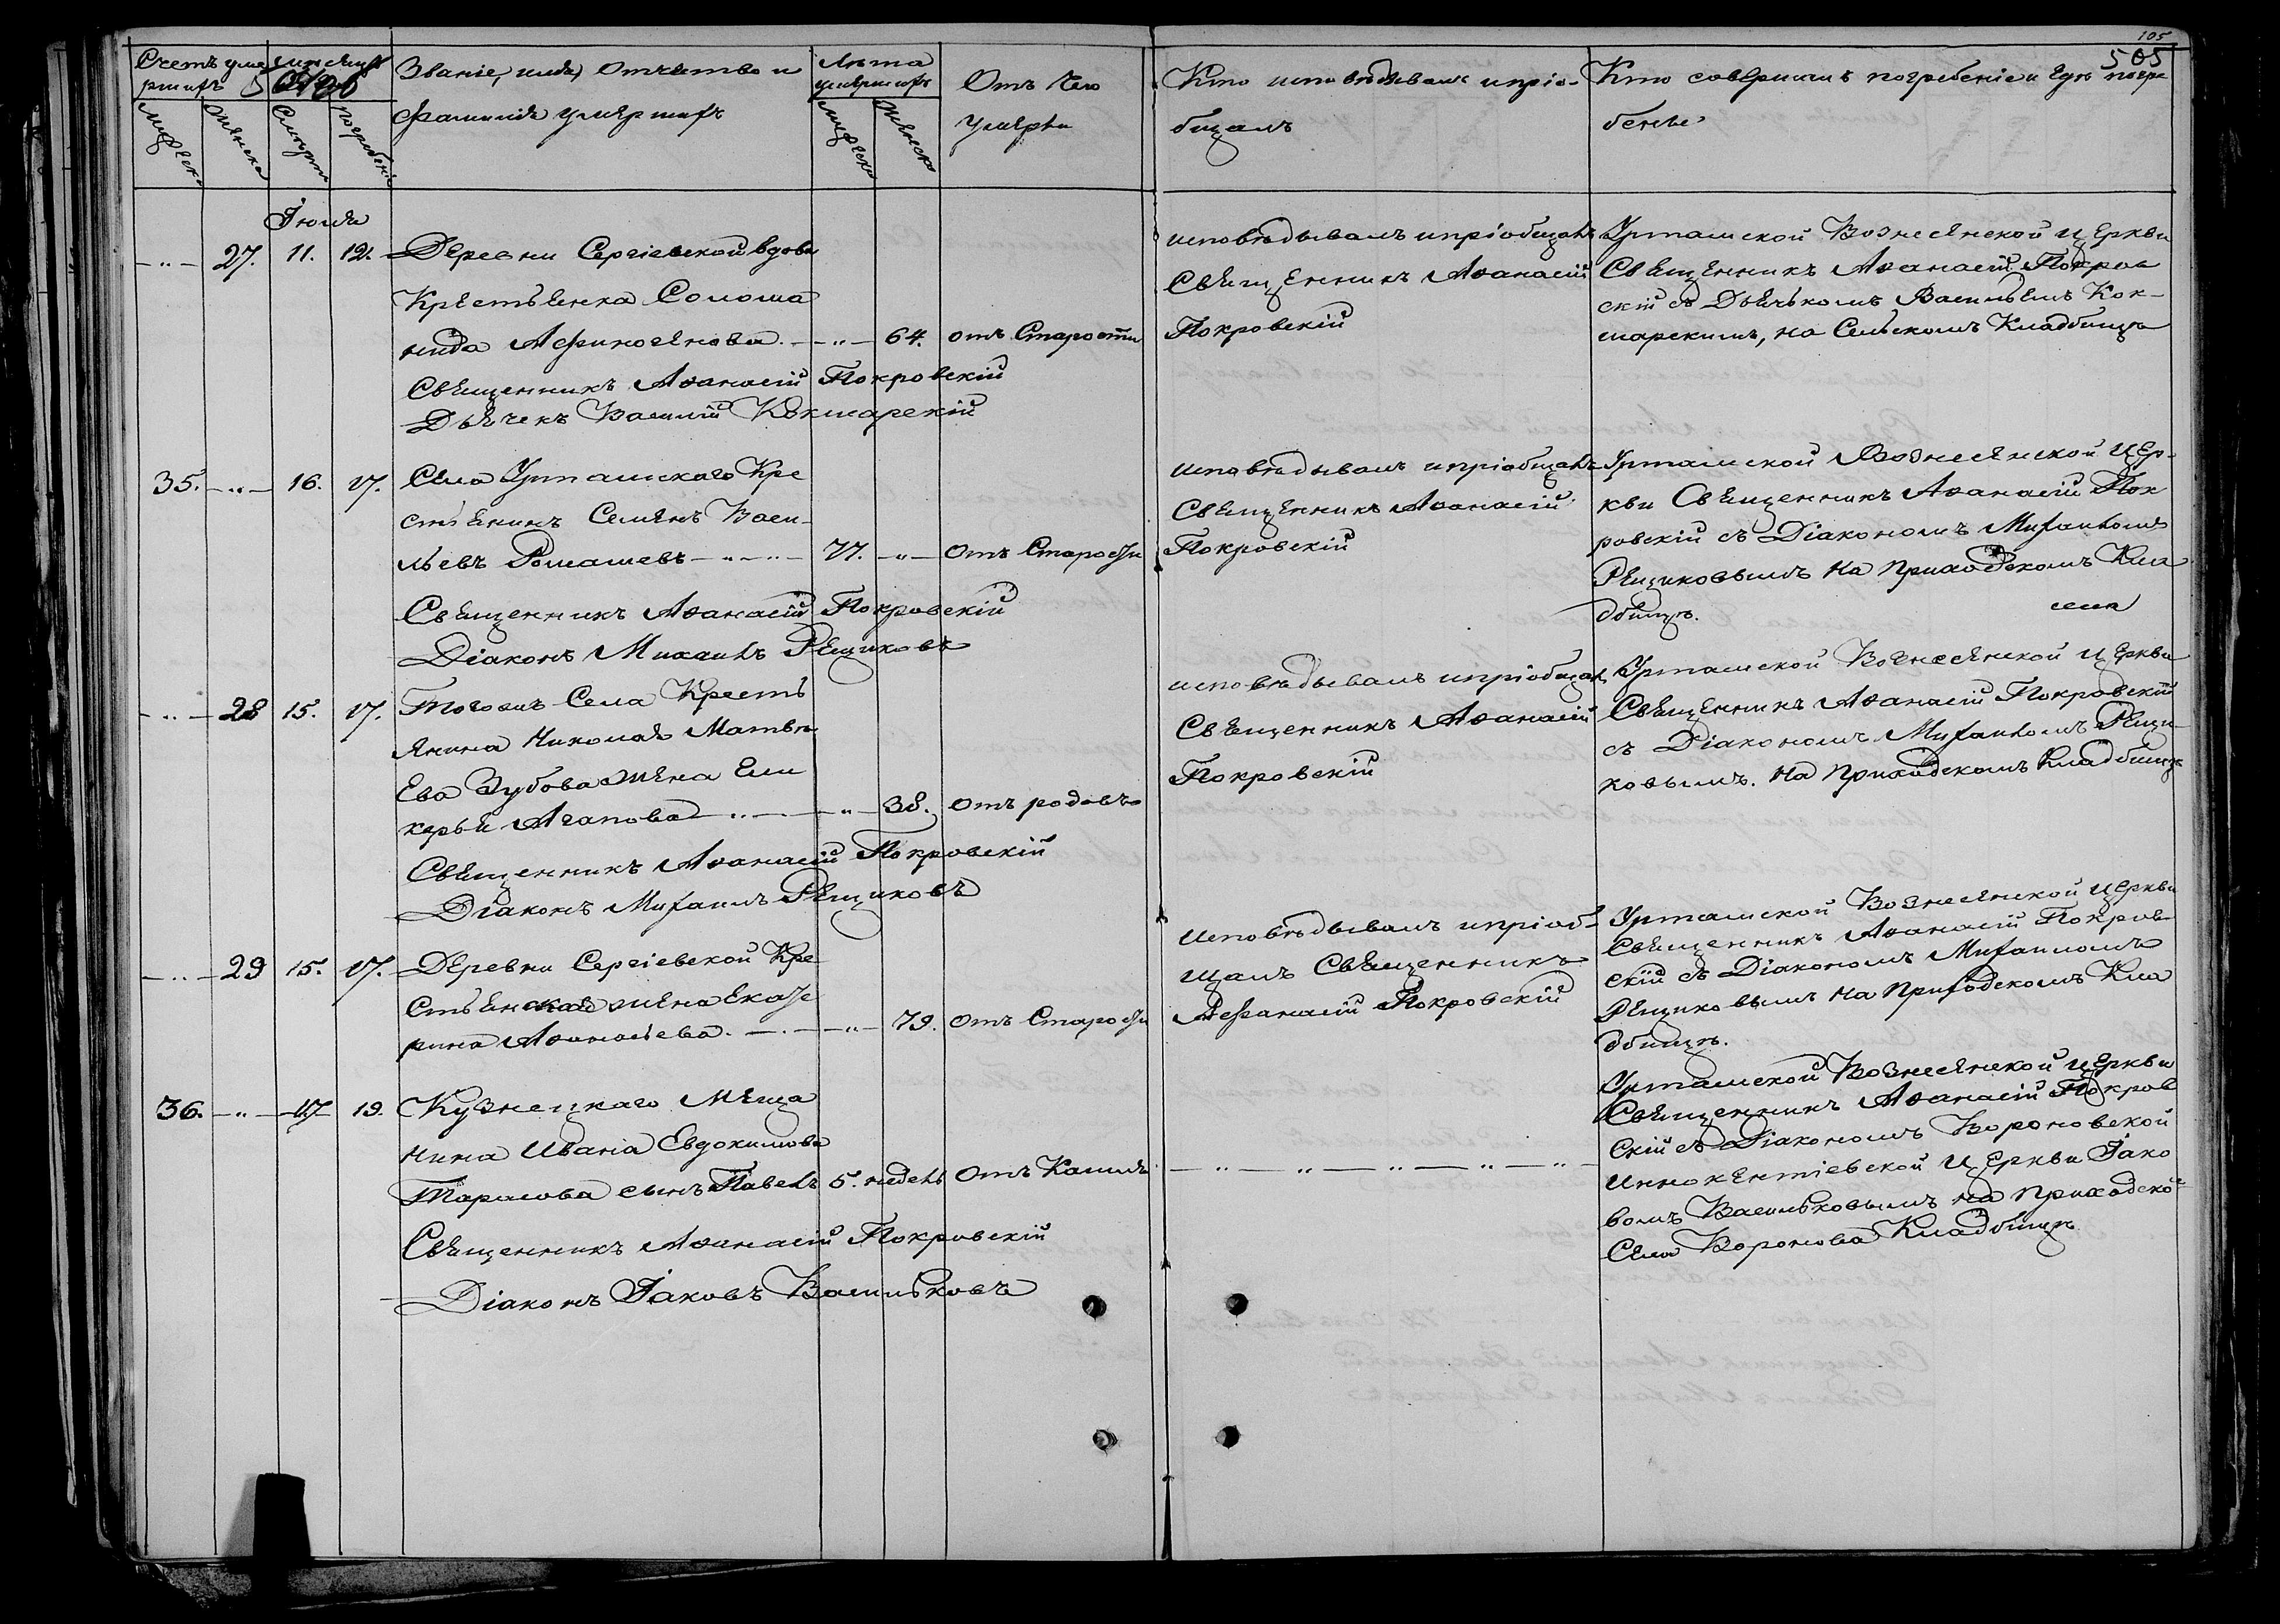 105
505
Счетъ уме
ршихъ
Мужеска
Женска
Смерти
погребенія
Званіе, имя, Отчество и
Фамилія умершихъ
Лѣта
умершихъ
Мужеска
Женска
Отъ чего
умерли
Кто исповѣдывалъ и пріо-
бщалъ
Кто совершилъ погребеніе и гдѣ погре
бены
Іюля
—"— 27. 11. 12. Деревни Сергіевской вдова
Крестьянка Соломо
нида Афиногенова. —"— 64. отъ Старости
Священникъ Аѳанасій Покровскій
Дьячекъ Василій Кокшарскій
исповѣдывалъ и пріобщалъ
Священникъ Аѳанасій
Покровскій
Уртамской Вознесенской церкви
Священникъ Аѳанасій Покров
скій съ Дьячькомъ Васильемъ Кок-
шарскимъ, на Сельскомъ Кладбищѣ
35. —"— 16. 17. Села Уртамскаго Кре
стьянинъ Семенъ Васи-
льевъ Ромашевъ —"—"— 77. —"— Отъ Старости
Священникъ Аѳанасій Покровскій
Діаконъ Михаилъ Рещиковъ
исповѣдывалъ и пріобщалъ
Священникъ Аѳанасій
Покровскій
Уртамской Вознесенской Цер-
кви Священникъ Аѳанасій Пок
ровскій съ Діакономъ Михаиломъ
Рещиковымъ на Приходскомъ Кла
дбищѣ.
села
—"— 28 15. 17. Тогожъ Села Кресть
янина Николая Матвѣ
ева Зубова жена Гли
керья Агапова —"— —"— 38. Отъ родовъ
Священникъ Аѳанасій Покровскій
Діаконъ Михаилъ Рещиковъ
исповѣдывалъ и пріобщалъ
Священникъ Аѳанасій
Покровскій
Уртамской Вознесенской Церкви
Священникъ Аѳанасій Покровскій
съ Діакономъ Михаиломъ Рещи-
ковымъ. На Приходскомъ Кладбищѣ
—"— 29 15. 17. Деревни Сергіевской Кре
стьянская жена Екате
рина Аѳанасьева. —"— 79. Отъ Старости
Исповѣдывалъ и пріоб-
щалъ Священникъ
Аѳанасій Покровскій
Уртамской Вознесенской Церкви
Священникъ Аѳанасій Покров
скій съ Діакономъ Михаиломъ
Рещиковымъ на Приходскомъ Кла
дбищѣ.
36. —"— 17 19. Кузнецкаго Меща
нина Ивана Евдокимова
Тарасова сынъ Павелъ 5. недель Отъ Кашля
Священникъ Аѳанасій Покровскій
Діаконъ Іаковъ Васильковъ
—"—"—"—"—"—
Уртамской Вознесенской церкви
Священникъ Аѳанасій Покров
скій съ Діакономъ Вороновской
Иннокентіевской Церкви Іако
вомъ Васильковымъ на Приходско
Села Воронова Кладбищѣ